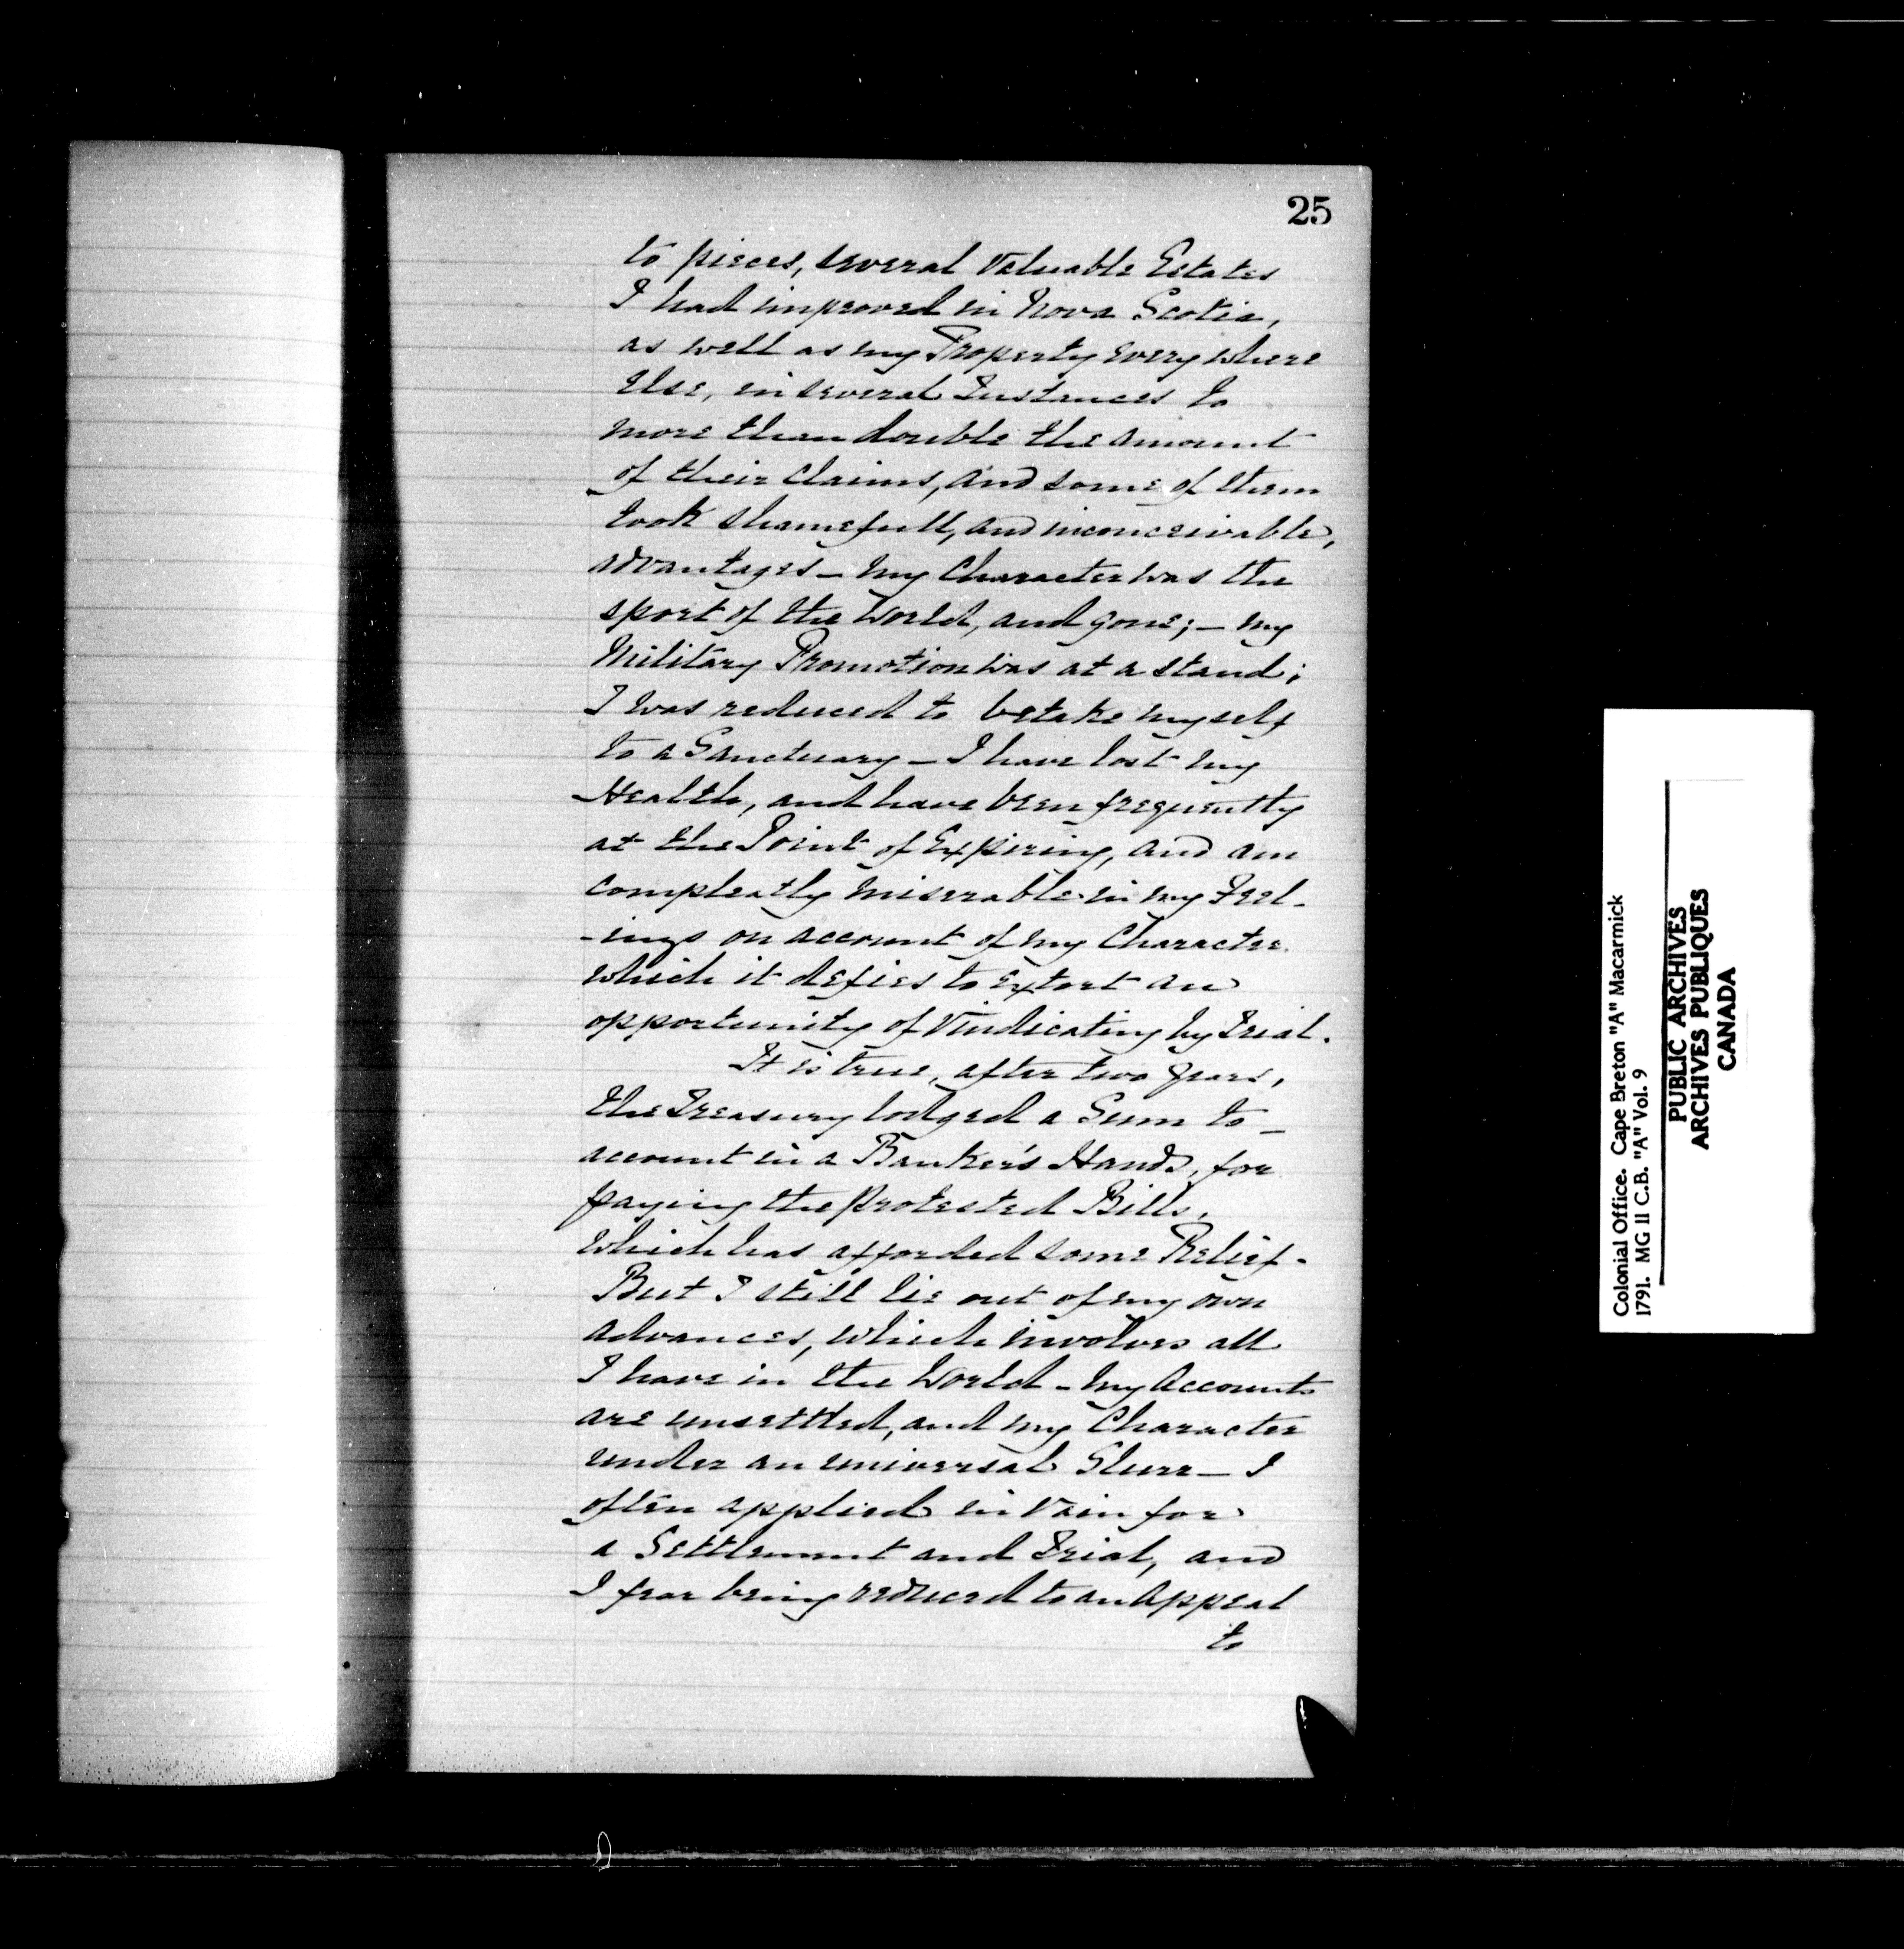 25
to pieces, several Valuable Estates
I had improved in Nova Scotia,
as well as my Property every where
else, in several Instances to
more than double the amount
of their Claims, and some of them
took shamefull, and inconceivable,
advantages _ my Character was the
sport of the World, and gone; _ my
Military Promotion was at a stand;
I was reduced to betake myself
to a Sanctuary _ I have lost my
Health, and have been frequently
at the Point of Expiring, and am
compleatly miserable in my Feel-
-ings on account of my Character
which it defies to extort an
opportunity of Vindicating by Trial.
It is true, after two years,
the Treasury lodged a Sum to _
account in a Banker's Hands, for
paying the Protested Bills,
which has afforded some Relief.
But I still lie out of my own
advances, which involves all
I have in the World _ my Accounts
are unsettled, and my Character
under an universal Slurr _ I
often applied in vain for
a Settlement and Trial, and
I fear being reduced to an Appeal
to
Colonial Office. Cape Breton "A" Macarmick
1791. MG 11 C.B. "A" Vol. 9
PUBLIC ARCHIVES
ARCHIVES PUBLIQUES
CANADA